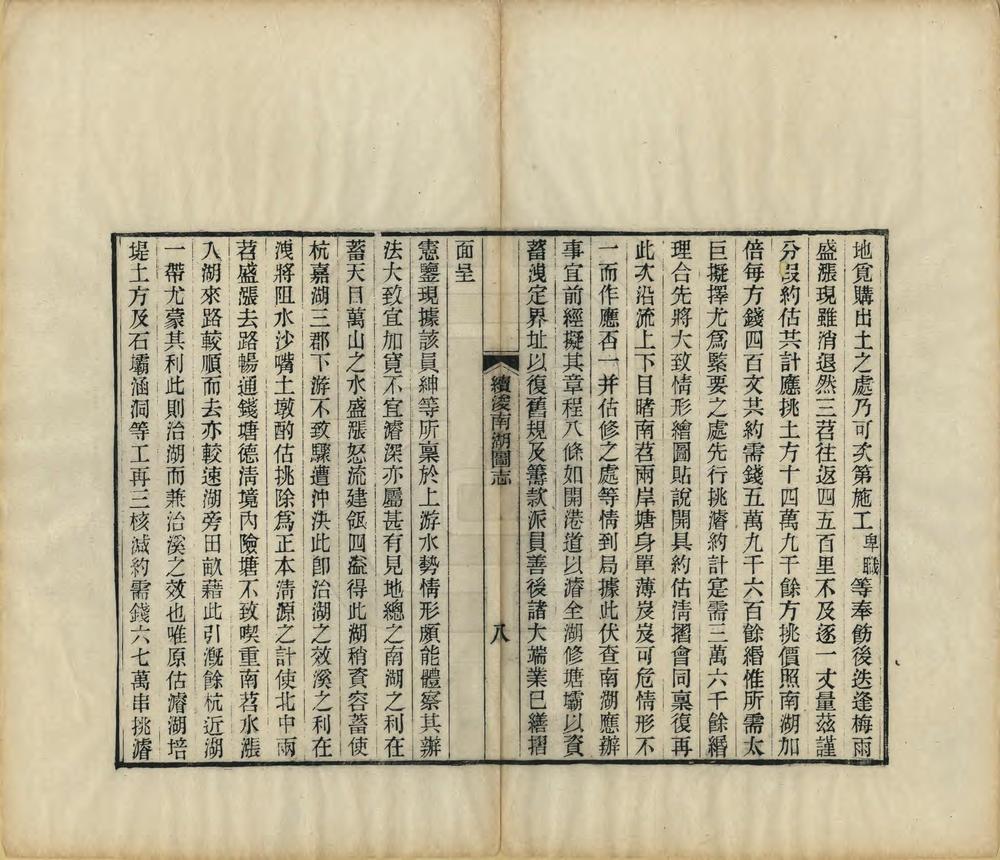 地覓購出土之處乃可次第施工卑職等奉飭後迭逢梅雨
盛漲現雖消退然三苕往返四五百里不及逐一丈量茲謹
分段約估共計應挑土方十四萬九千餘方挑價照南湖加
倍每方錢四百文共約需錢五萬九千六百餘緡惟所需太
巨擬擇尤為緊要之處先行挑濬約計寔需三萬六千餘緡
理合先將大致情形繪圖貼說開具約估清摺會同稟復再
此次沿流上下目睹南苕兩岸塘身單薄岌岌可危情形不
一而作應否一并估修之處等情到局據此伏查南湖應辦
事宜前經擬其章程八條如開港道以濬全湖修塘壩以資
蓄洩定界址以復舊規及籌款派員善後諸大端業已繕摺
續浚南湖圖志
八
面呈
憲鑒現據該員紳等所稟於上游水勢情形頗能體察其辦
法大致宜加寬不宜濬深亦屬甚有見地總之南湖之利在
蓄天目萬山之水盛漲怒流建瓴四溢得此湖稍資容蓄使
杭嘉湖三郡下游不致驟遭沖決此卽治湖之效溪之利在
洩將阻水沙嘴土墩酌估挑除為正本清源之計使北中兩
苕盛漲去路暢通錢塘德清境內險塘不致喫重南苕水漲
入湖來路較順而去亦較速湖旁田畝藉此引漑餘杭近湖
一帶尤蒙其利此則治湖而兼治溪之效也唯原估濬湖培
堤土方及石壩涵洞等工再三核減約需錢六七萬串挑濬